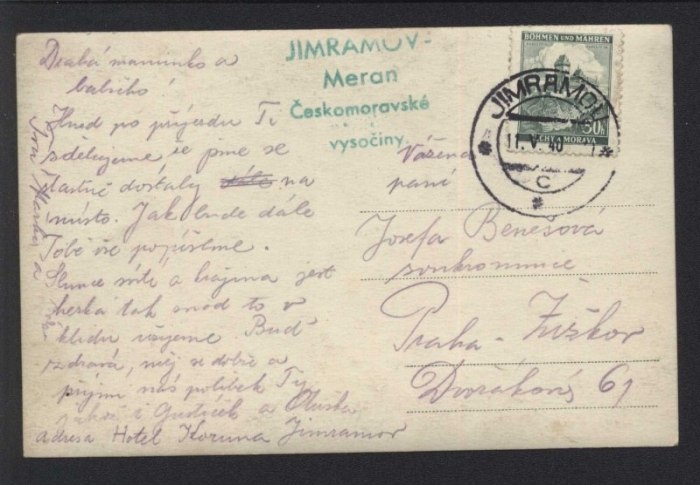 Drahá maminko a
babičko!
Hned po příjezdu Ti
sdělujeme že jsme se
šťastně dostaly dále na
místo. Jak bude dále
Tobě vše popíšeme.
Slunce svítí a krajina jest
hezká tak snad to v
klidu užijeme Buď
zdráva, měj se dobře a
přijmi náš polibek Ty
i Gustíček a Oluška
adresa Hotel Koruna Jimramov
JIMRAMOV-
Meran
Českomoravské
vysočiny
BÖHMEN UND MÄHREN
ČECHY A MORAVA
50h
JIMRAMOV
11. V. 40
C
Vážená
paní
Josefa Benešová
soukromnice
Praha - Žižkov
Dvořákova 61